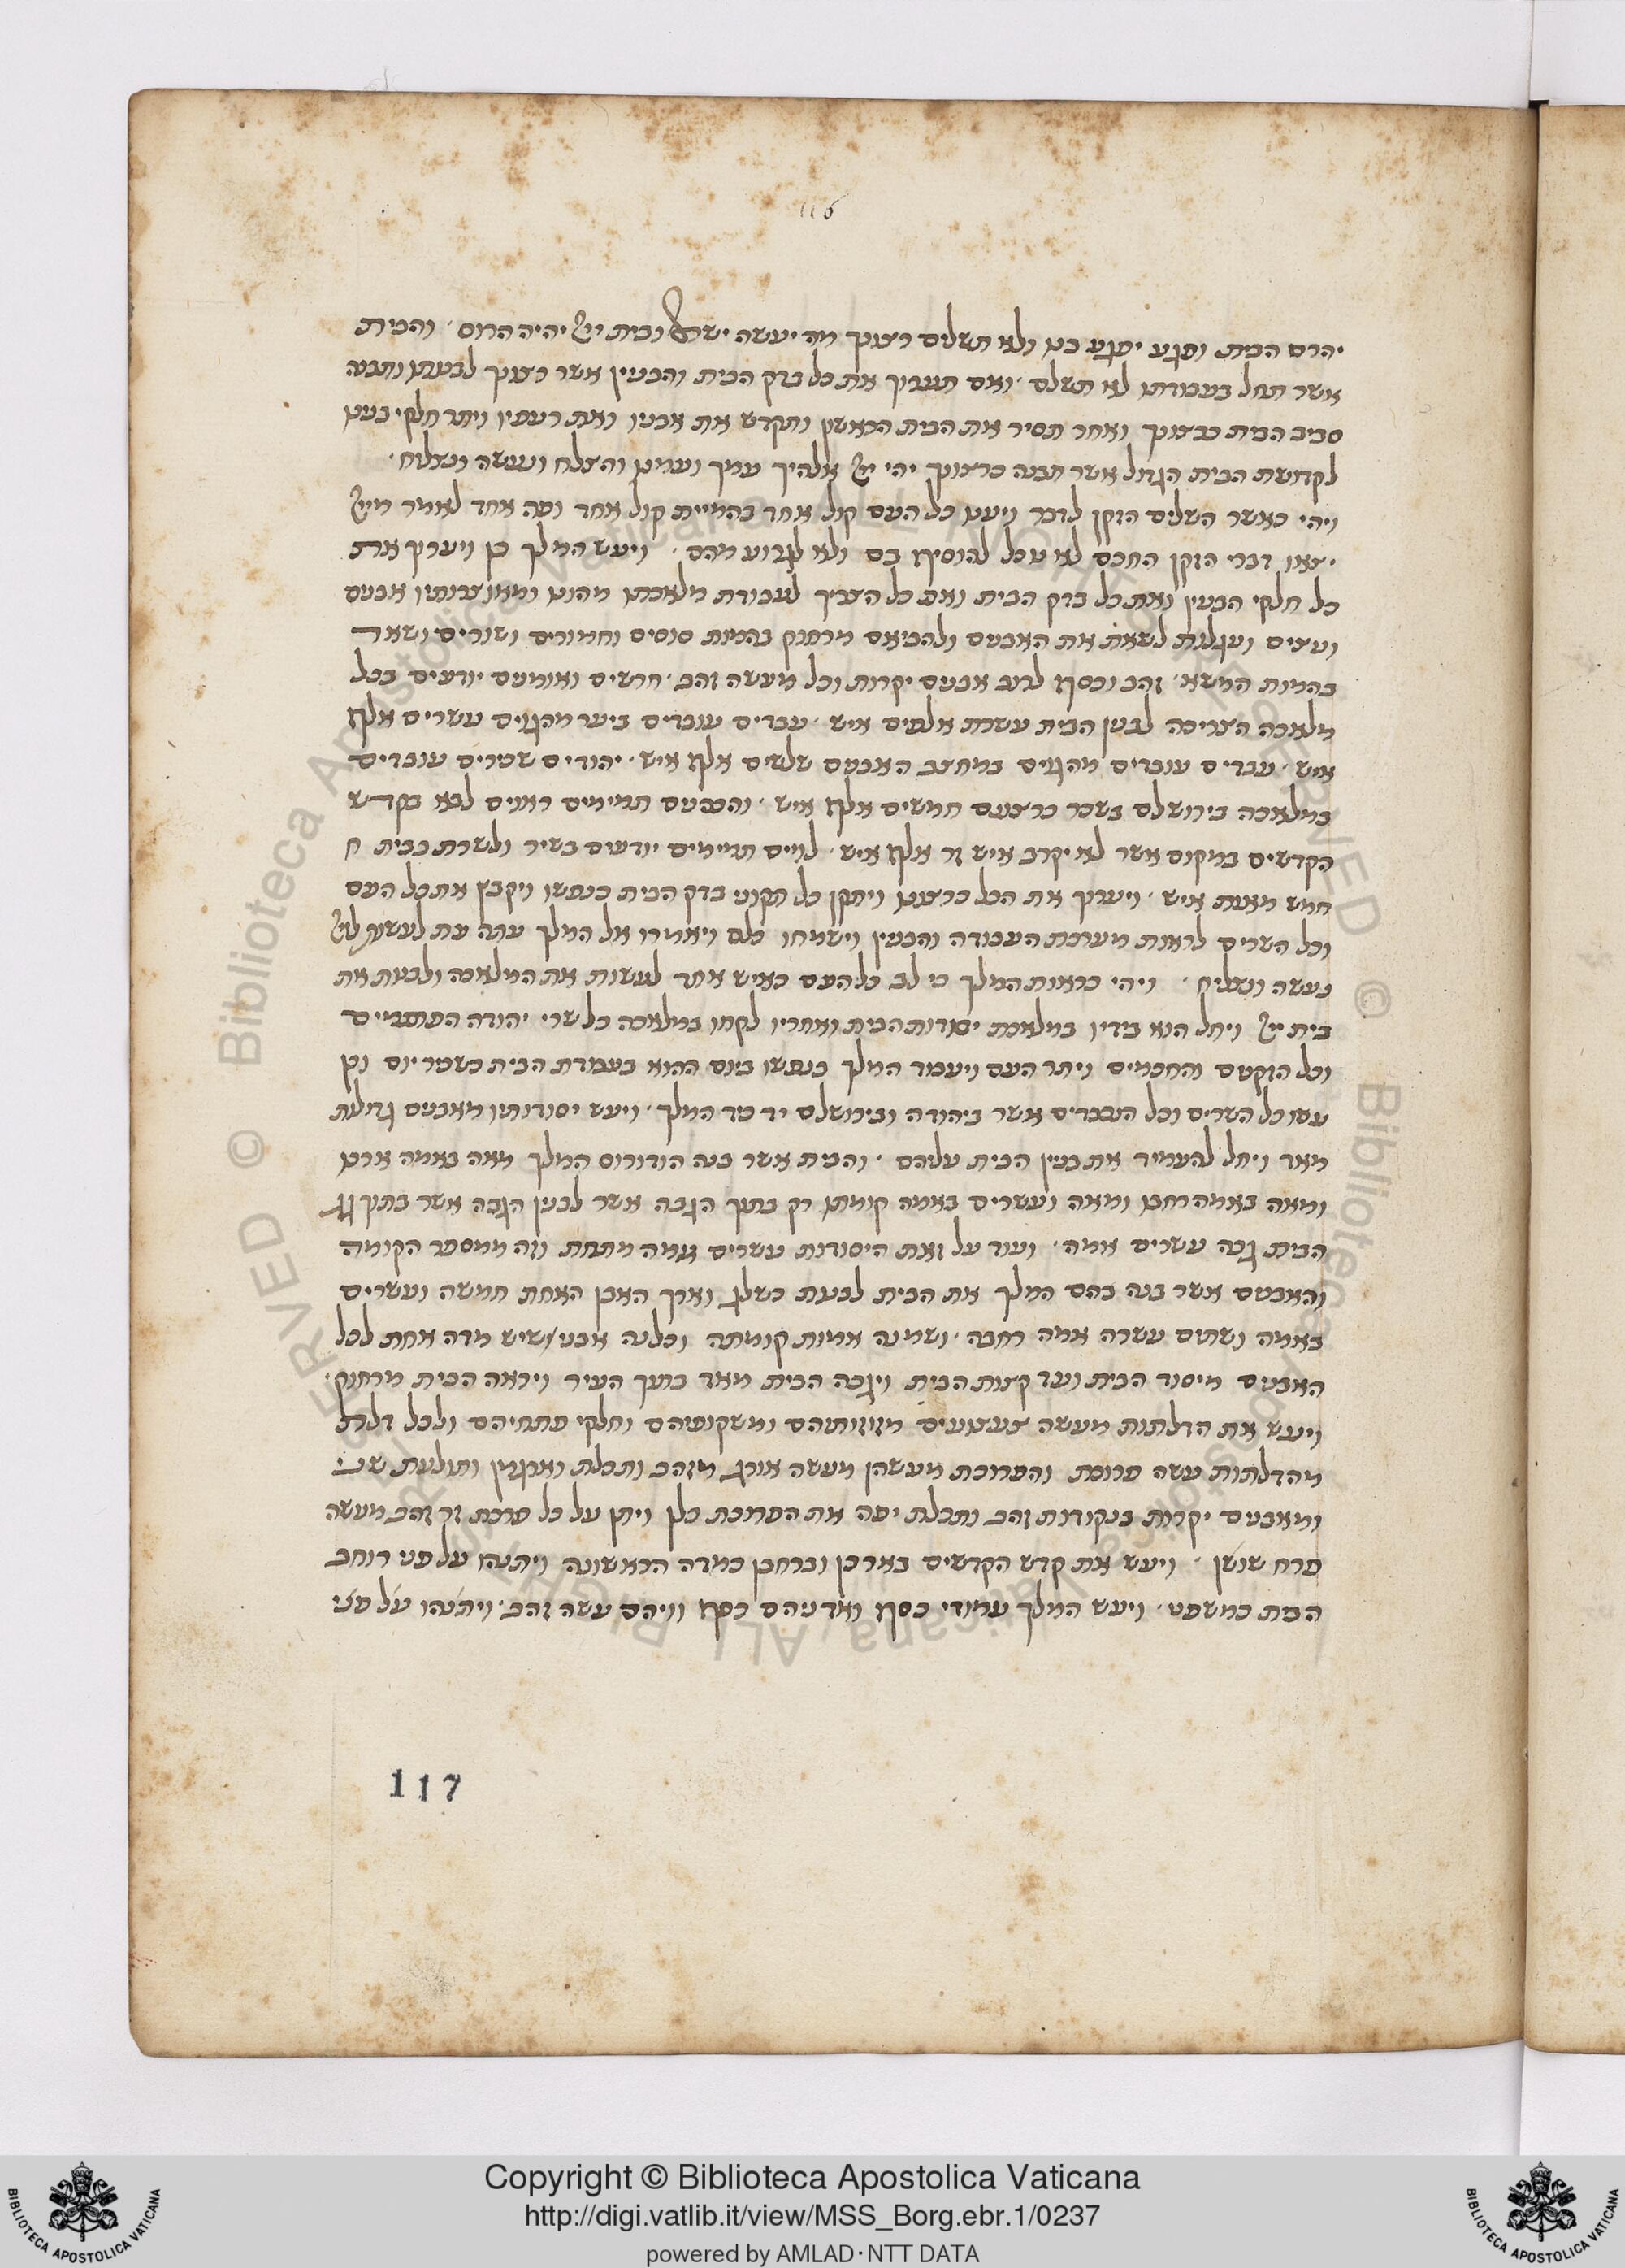 116
יהרס הבית ופגע יפגע בנו ולא תשלים רצונך מה יעשה ישראל ובית ייי יהיה הרוס והבית
אשר תחל בעבודתו לא תשלם ואם תערוך את כל בדק הבית והבנין אשר רצונך לבנותו ותבנה
סביב הבית כרצונך ואחר תסיר את הבית הראשון ותקדש את אבניו ואת רעפיו ויתר חלקי בנינו
לקדושת הבית הגדול אשר תבנה כרצונך יהי ייי אלהיך עמך ועמנו והצלח ונעשה ונצליח
ויהי כאשר השלים הזקן לדבר ויענו כל העם קול אחד בהמיית קול אחד ופה אחד לאמר מייי
יצאו דברי הזקן החכם לא נוכל להוסיף בם ולא לגרוע מהם ויעש המלך כן ויערוך את
כל חלקי הבנין ואת כל בדק הבית ואת כל הצריך לעבודת מלאכתו מהונו ומאוצרותיו אבנים
ועצים ועגלות לשאת את האבנים ולהביאם מרחוק בהמות סוסים וחמורים ושורים ושאר
בהמות המשא זהב וכסף לרוב אבנים יקרות וכל מעשה זהב חרשים ואומנים יודעים בכל
מלאכה הצריכה לבנין הבית עשרת אלפים איש עבדים עובדים ביער מהגוים עשרים אלף
איש עבדים עובדים מהגוים במחצב האבנים שלשים אלף איש יהודים שכירים עובדים
במלאכה בירושלם בשכר כרצונם חמשים אלף איש והכהנים תמימים ראוים לבא בקדש
הקדשים במקום אשר לא יקרב איש זר אלף איש לוים תמימים יודעים בשיר ולשרת בבית ח
חמש מאות איש ויערוך את הכל כרצונו ויתקן כל תקוני בדק הבית כנפשו ויקבץ את כל העם
וכל השרים לראות מערכת העבודה והבנין וישמחו כלם ויאמרו אל המלך עתה עת לעשות לייי
נעשה ונצליח ויהי כראות המלך כי לב כל העם כאיש אחד לעשות את המלאכה ולבנות את
בית ייי ויחל הוא בידיו במלאכת יסודות הבית ואחריו לקחו במלאכה כל שרי יהודה הפרתמיים
וכל הזקנים והחכמים ויתר העם ויעבוד המלך בנפשו ביום ההוא בעבודת הבית כשכיר יום וכן
עשו כל השרים וכל העבדים אשר ביהודה ובירושלם יד כיד המלך ויעש יסודותיו מאבנים גדולות
מאד ויחל להעמיד את בנין הבית עליהם והבית אשר בנה הורודוס המלך מאה באמה ארכו
ומאה באמה רחבו ומאה ועשרים באמה קומתו רק בתוך הגבה אשר לבנין הגבה אשר בתוך גג
הבית גבה עשרים אמה ועוד על זאת היסודות עשרים אמה מתחת וזה ממספר הקומה
והאבנים אשר בנה בהם המלך את הבית לבנות כשלג וארך האבן האחת חמשה ועשרים
באמה ושתים עשרה אמה רחבה ושמנה אמות קומתה וכלנה אבני שיש מדה אחת לכל
האבנים מיסוד הבית ועד קצות הבית ויגבה הבית מאד בתוך העיר ויראה הבית מרחוק
ויעש את הדלתות מעשה צעצועים מזוזותיהם ומשקופיהם וחלקי פתחיהם ולכל דלת
מהדלתות עשה פרוכת והפרוכת מעשהן מעשה אורג מזהב ותכלת וארגמן ותולעת שני
ומאבנים יקרות בנקודות זהב ותכלת יפה את הפרוכת כלן ויתן על כל פרכת זר זהב מעשה
פרח שושן ויעש את קדש הקדשים בארכו וברחבו כמדה הראשונה ויתנהו על פני רוחב
הבית כמשפט ויעש המלך עמודי כסף ואדניהם כסף וויהם עשה זהב ויתנהו על פני
117
Copyright © Biblioteca Apostolica Vaticana
http://digi.vatlib.it/view/MSS_Borg.ebr.1/0237
powered by AMLAD·NTT DATA